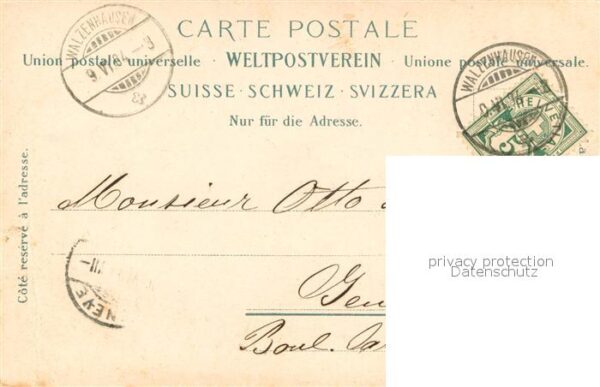 CARTE POSTALE
Union postale universelle · WELTPOSTVEREIN · Unione postale universale.
SUISSE · SCHWEIZ · SVIZZERA
Nur für die Adresse.
Côté réservé à l'adresse.
WALZENHAUSEN
9 VI 04
WALZENHAUSEN
HELVETIA
Monsieur Otto
Gen
Boul.
NÈVE
privacy protection
Datenschutz